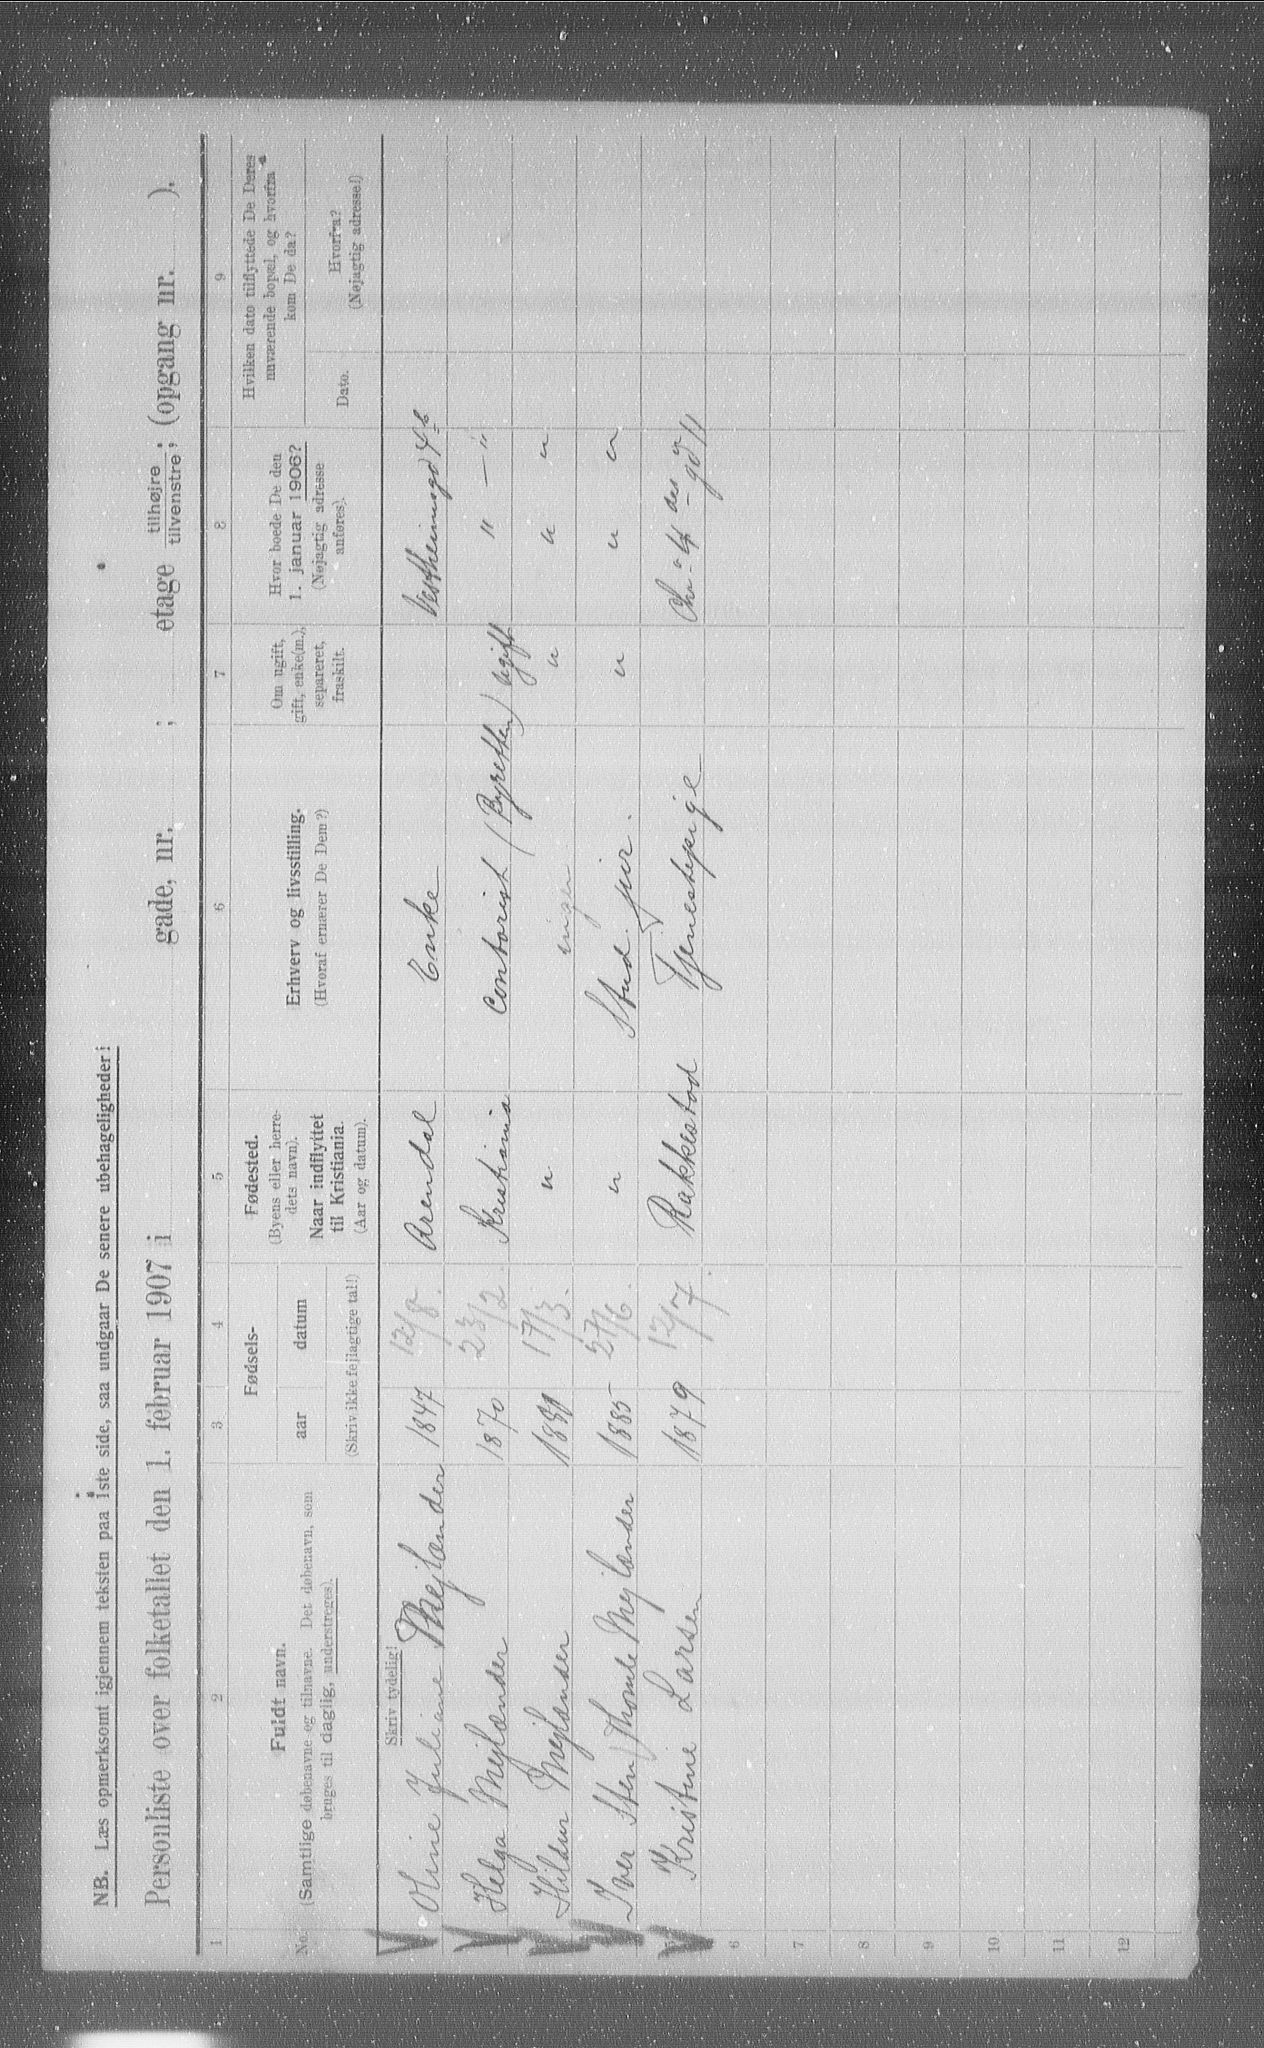 NB. Læs opmerksomt igjennem teksten paa 1ste side, saa undgaar De senere ubehageligheder!
Personliste over folketallet den 1. februar 1907 i gade, nr. ; etage tilhøjre tilvenstre; (opgang nr. ).
1 2 3 4 5 6 7 8 9
No.
Fuldt navn.
(Samtlige døbenavne og tilnavne. Det døbenavn, som
bruges til daglig, understreges).
Fødsels-
aar datum
(Skriv ikke fejlagtige tal!)
Fødested.
(Byens eller herre-
dets navn).
Naar indflyttet
til Kristiania.
(Aar og datum).
Erhverv og livsstilling.
(Hvoraf ernærer De Dem?)
Om ugift,
gift, enke(m.),
separeret,
fraskilt.
Hvor boede De den
1. januar 1906?
(Nøjagtig adresse
anføres).
Hvilken dato tilflyttede De Deres
nuværende bopæl, og hvorfra
kom De da?
Dato.
Hvorfra?
(Nøjagtig adresse!)
Skriv tydelig!
Oline Juliane Mejlænder 1847 12/8. Arendal Enke Vestheimsgd 4 b
Helga Mejlænder 1870 23/2. Kristiania Contorist (Byretten) ugift " — "
Hildur Mejlænder 17/3. " ingen " " "
Iver Sten Thomle Mejlænder 1885 27/6. " Stud. jur. " " "
Kristine Larsen 1879 12/7. Rakkestad Tjenestepige gd 11
6
7
8
9
10
11
12